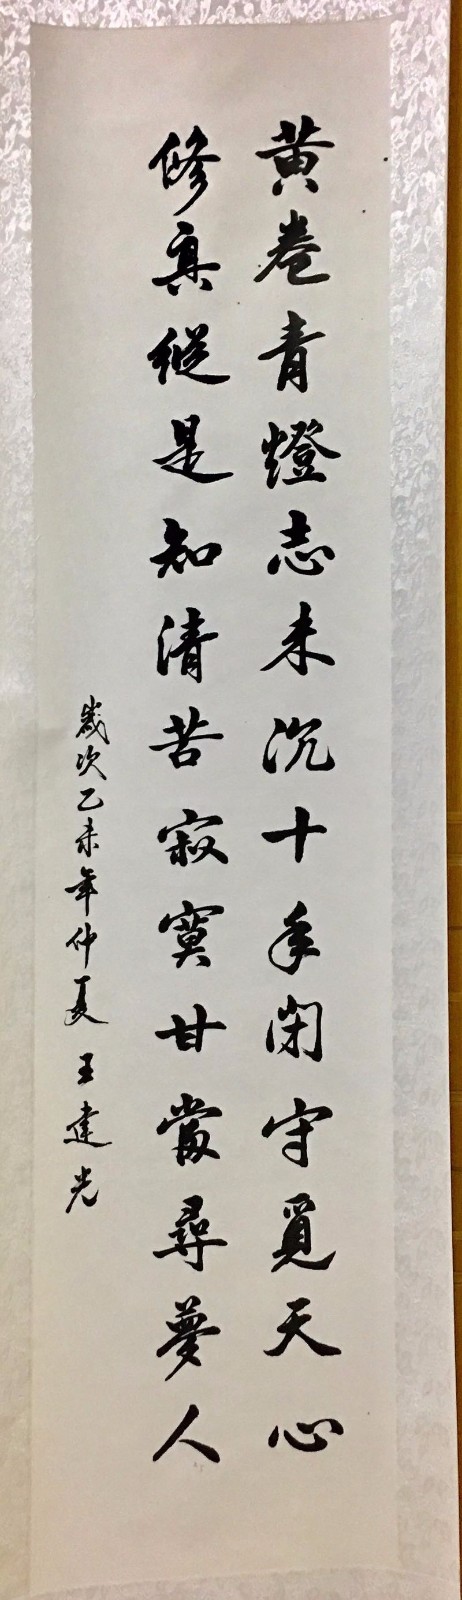 黄卷青燈志未沉十年閉守覓天心
修真縱是知清苦寂寞甘當尋夢人
歲次乙未年仲夏 王建光